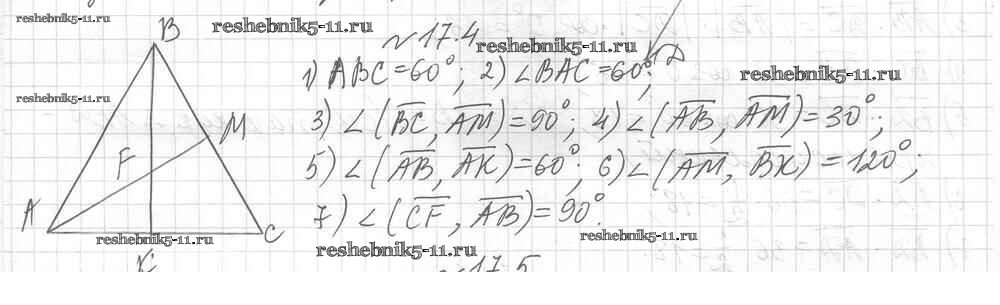 reshebnik5-11.ru
B
reshebnik5-11.ru
N17.4
reshebnik5-11.ru
1) ABC = 60°; 2) ∠BAC = 60°;
reshebnik5-11.ru
reshebnik5-11.ru
3) ∠(B̅C̅, A̅M̅) = 90°; 4) ∠(A̅B̅, A̅M̅) = 30°;
M
F
5) ∠(A̅B̅, A̅K̅) = 60°; 6) ∠(A̅M̅, B̅K̅) = 120°;
A
7) ∠(C̅F̅, A̅B̅) = 90°.
C
reshebnik5-11.ru
reshebnik5-11.ru
reshebnik5-11.ru
K
N17.5